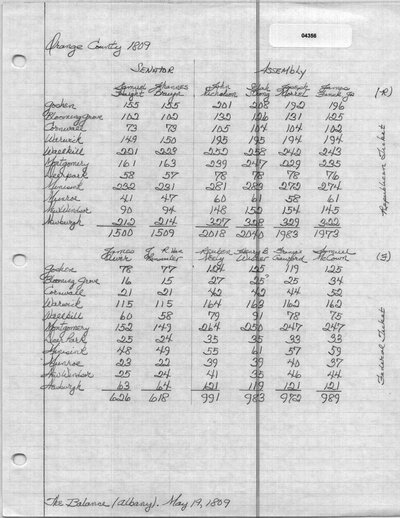 04356
Orange County 1809
SENATOR ASSEMBLY
Samuel Johannes John Joseph James
Haight Bruyn Nicholson
Goshen 155 155 201 208 192 196
Blooming Grove 102 102 132 126 131 125
Cornwall 73 73 105 104 104 102
Warwick 149 150 195 195 194 194
Wallkill 201 209 252 258 242 243
Montgomery 161 163 239 247 229 235
Deerpark 58 57 78 78 78 76
Minisink 232 231 281 289 272 274
Monroe 41 47 60 61 58 61
New Windsor 90 94 148 152 154 145
Newburgh 212 214 327 328 329 322
1500 1509 2018 2040 1983 1973
(R)
Republican Ticket
James Reuben Samuel
Neely McCown
Goshen 78 77 124 125 119 125
Blooming Grove 16 15 27 25 25 34
Cornwall 21 21 42 42 44 52
Warwick 115 115 164 163 162 162
Wallkill 60 58 79 91 78 75
Montgomery 152 149 264 250 247 247
Deer Park 25 24 35 35 33 33
Minisink 48 49 55 61 57 59
Monroe 23 22 39 39 40 37
New Windsor 25 24 41 35 46 44
Newburgh 63 64 121 119 121 121
626 618 991 983 972 989
Federal Ticket
The Balance (Albany). May 19, 1809